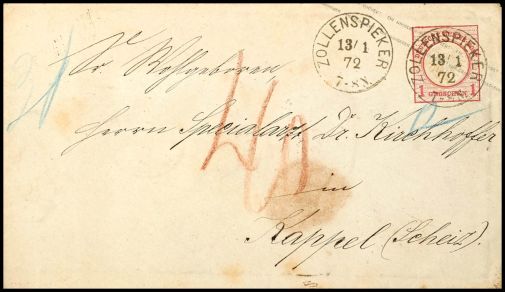 ZOLLENSPIEKER
13/1
72
7-8N.
ZOLLENSPIEKER
13/1
72
1 GROSCHEN 1
Sr. Wohlgeboren
Herrn Specialarzt Dr. Kirchhoffer
in
Kappel (Schweiz).